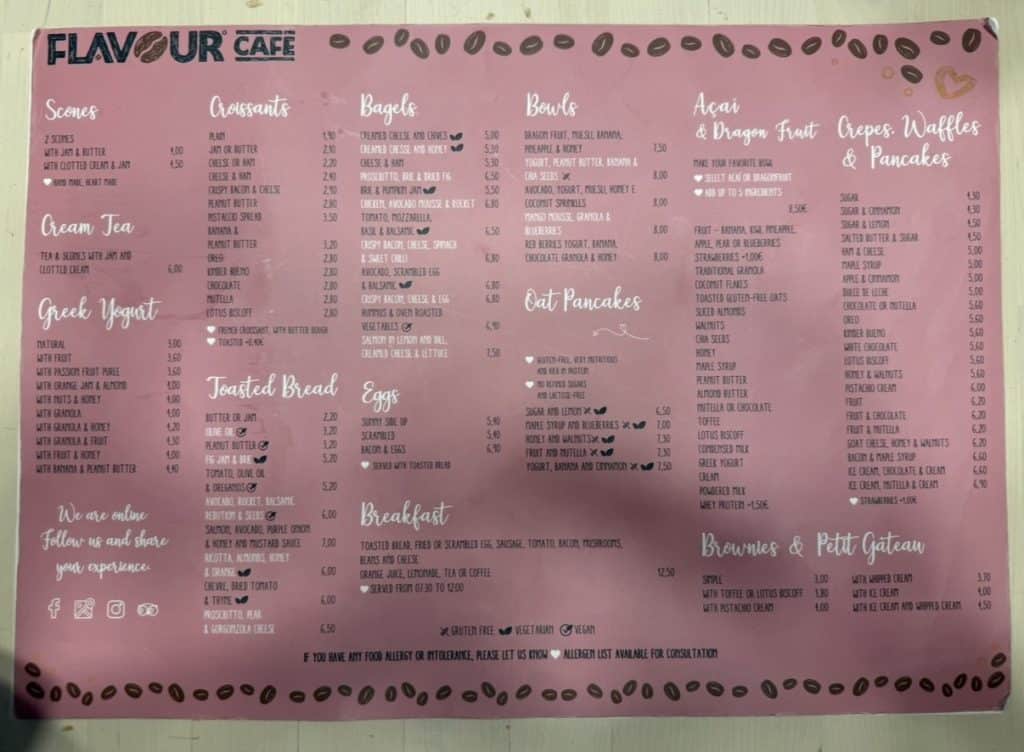 FLAVOUR CAFÉ
Scones
2 SCONES
WITH JAM & BUTTER 4,00
WITH CLOTTED CREAM & JAM 4,50
HAND MADE, HEART MADE
Cream Tea
TEA & SCONES WITH JAM AND
CLOTTED CREAM 6,00
Greek Yogurt
NATURAL 3,00
WITH FRUIT 3,60
WITH PASSION FRUIT PUREE 3,60
WITH ORANGE JAM & ALMOND 4,00
WITH NUTS & HONEY 4,00
WITH GRANOLA 4,00
WITH GRANOLA & HONEY 4,00
WITH GRANOLA & FRUIT 4,30
WITH FRUIT & HONEY 4,00
WITH BANANA & PEANUT BUTTER 4,40
We are online
Follow us and share
your experience.
Croissants
PLAIN 1,90
JAM OR BUTTER 2,10
CHEESE OR HAM 2,20
CHEESE & HAM 2,40
CRISPY BACON & CHEESE 2,90
PEANUT BUTTER 2,80
PISTACCIO SPREAD 3,50
BANANA &
PEANUT BUTTER 3,20
OREO 2,80
KINDER BUENO 2,80
CHOCOLATE 2,80
NUTELLA 2,80
LOTUS BISCOFF 2,80
FRENCH CROISSANT, WITH BUTTER DOUGH
TOASTED +0,40€
Toasted Bread
BUTTER OR JAM 2,20
OLIVE OIL 3,20
PEANUT BUTTER 3,20
FIG JAM & BRIE 5,20
TOMATO, OLIVE OIL
& OREGANOS 5,20
AVOCADO, ROCKET, BALSAMIC
REDUTION & SEEDS 6,00
SALMON, AVOCADO, PURPLE ONION
& HONEY AND MUSTARD SAUCE 7,00
RICOTTA, ALMONDS, HONEY
& ORANGE 6,00
CHEVRE, DRIED TOMATO
& THYME 6,00
PROSCIUTTO, PEAR
& GORGONZOLA CHEESE 6,50
Bagels
CREAMED CHEESE AND CHIVES 5,00
CREAMED CHESSE AND HONEY 5,30
CHEESE & HAM 5,30
PROSCIUTTO, BRIE & DRIED FIG 6,50
BRIE & PUMPKIN JAM 5,50
CHICKEN, AVOCADO MOUSSE & ROCKET 6,80
TOMATO, MOZZARELLA,
BASIL & BALSAMIC 6,50
CRISPY BACON, CHEESE, SPINACH
& SWEET CHILLI 6,80
AVOCADO, SCRAMBLED EGG
& BALSAMIC 6,80
CRISPY BACON, CHEESE & EGG 6,80
HUMMUS & OVEN ROASTED
VEGETABLES 6,90
SALMON IN LEMON AND DILL,
CREAMED CHEESE & LETTUCE 7,50
Eggs
SUNNY SIDE UP 5,40
SCRAMBLED 5,40
BACON & EGGS 6,90
SERVED WITH TOASTED BREAD
Breakfast
TOASTED BREAD, FRIED OR SCRAMBLED EGG, SAUSAGE, TOMATO, BACON, MUSHROOMS,
BEANS AND CHEESE
ORANGE JUICE, LEMONADE, TEA OR COFFEE 12,50
SERVED FROM 07:30 TO 12:00
Bowls
DRAGON FRUIT, MUESLI, BANANA,
PINEAPPLE & HONEY 7,50
YOGURT, PEANUT BUTTER, BANANA &
CHIA SEEDS 8,00
AVOCADO, YOGURT, MUESLI, HONEY E
COCONUT SPRINKLES 8,00
MANGO MOUSSE, GRANOLA &
BLUEBERRIES 8,00
RED BERRIES YOGURT, BANANA,
CHOCOLATE GRANOLA & HONEY 8,00
Oat Pancakes
GLUTEN-FREE, VERY NUTRITIOUS
AND RICH IN PROTEIN
NO REFINED SUGARS
AND LACTOSE-FREE
SUGAR AND LEMON 6,50
MAPLE SYRUP AND BLUEBERRIES 7,00
HONEY AND WALNUTS 7,30
FRUIT AND NUTELLA 7,30
YOGURT, BANANA AND CINNAMON 7,50
Açai
& Dragon Fruit
MAKE YOUR FAVORITE BOWL
SELECT AÇAÍ OR DRAGONFRUIT
ADD UP TO 5 INGREDIENTS
8,50€
FRUIT – BANANA, KIWI, PINEAPPLE,
APPLE, PEAR OU BLUEBERRIES
STRAWBERRIES +1,00€
TRADITIONAL GRANOLA
COCONUT FLAKES
TOASTED GLUTEN-FREE OATS
SLICED ALMONDS
WALNUTS
CHIA SEEDS
HONEY
MAPLE SYRUP
PEANUT BUTTER
ALMOND BUTTER
NUTELLA OR CHOCOLATE
TOFFEE
LOTUS BISCOFF
CONDENSED MILK
GREEK YOGURT
CREAM
POWDERED MILK
WHEY PROTEIN +1,50€
Crepes, Waffles
& Pancakes
SUGAR 4,30
SUGAR & CINNAMON 4,30
SUGAR & LEMON 4,50
SALTED BUTTER & SUGAR 4,50
HAM & CHEESE 5,00
MAPLE SYRUP 5,00
APPLE & CINNAMON 5,00
DULCE DE LECHE 5,00
CHOCOLATE OU NUTELLA 5,60
OREO 5,60
KINDER BUENO 5,60
WHITE CHOCOLATE 5,60
LOTUS BISCOFF 5,60
HONEY & WALNUTS 5,60
PISTACHIO CREAM 6,00
FRUIT 6,20
FRUIT & CHOCOLATE 6,20
FRUIT & NUTELLA 6,20
GOAT CHEESE, HONEY & WALNUTS 6,20
BACON & MAPLE SYRUP 6,60
ICE CREAM, CHOCOLATE & CREAM 6,60
ICE CREAM, NUTELLA & CREAM 6,90
STRAWBERRIES +1,00€
Brownies & Petit Gâteau
SIMPLE 3,00
WITH TOFFEE OR LOTUS BISCOFF 3,80
WITH PISTACHIO CREAM 4,00
WITH WHIPPED CREAM 3,70
WITH ICE CREAM 4,00
WITH ICE CREAM AND WHIPPED CREAM 4,50
GLUTEN FREE VEGETARIAN VEGAN
IF YOU HAVE ANY FOOD ALLERGY OR INTOLERANCE, PLEASE LET US KNOW ALLERGEN LIST AVAILABLE FOR CONSULTATION